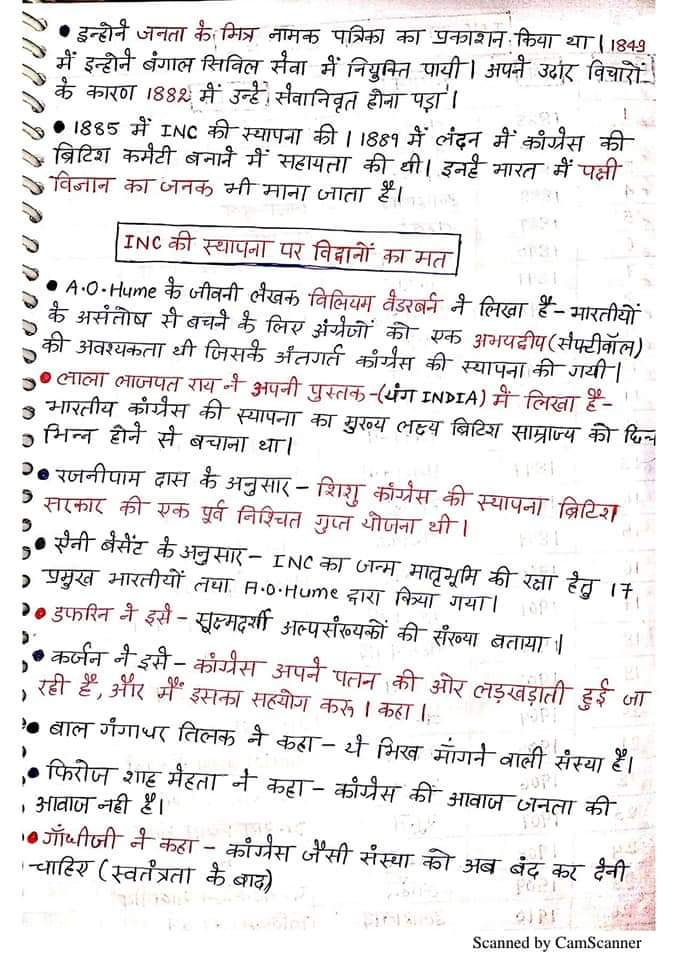 • इन्होने जनता के मित्र नामक पत्रिका का प्रकाशन किया था। 1849
में इन्होने बंगाल सिविल सेवा में नियुक्ति पायी। अपने उदार विचारों
के कारण 1882 में उन्हे सेवानिवृत होना पड़ा।
• 1885 में INC की स्थापना की। 1889 में लंदन में कांग्रेस की
ब्रिटिश कमेटी बनाने में सहायता की थी। इनहे भारत में पक्षी
विज्ञान का जनक भी माना जाता है।
INC की स्थापना पर विद्वानों का मत
• A.O.Hume के जीवनी लेखक विलियम वैडरबर्न ने लिखा है - भारतीयों
के असंतोष से बचने के लिए अंग्रेजों को एक अभयद्वीप (सेफ्टीवॉल)
की अवश्यकता थी जिसके अंतगर्त कांग्रेस की स्थापना की गयी।
• लाला लाजपत राय ने अपनी पुस्तक - (यंग INDIA) में लिखा है -
भारतीय कांग्रेस की स्थापना का मुख्य लक्ष्य ब्रिटिश साम्राज्य को छिन्न
भिन्न होने से बचाना था।
• रजनीपाम दास के अनुसार - शिशु कांग्रेस की स्थापना ब्रिटिश
सरकार की एक पूर्व निश्चित गुप्त योजना थी।
• ऐनी बेसेंट के अनुसार - INC का जन्म मातृभूमि की रक्षा हेतु 17
प्रमुख भारतीयों तथा A.O.Hume द्वारा किया गया।
• डफरिन ने इसे - सूक्ष्मदर्शी अल्पसंख्यकों की संख्या बताया।
• कर्जन ने इसे - कांग्रेस अपने पतन की ओर लड़खड़ाती हुई जा
रही है, और मैं इसका सहयोग करू। कहा।
• बाल गंगाधर तिलक ने कहा - ये भिख माँगने वाली संस्था है।
• फिरोज शाह मेहता ने कहा - कांग्रेस की आवाज जनता की
आवाज नही है।
• गाँधीजी ने कहा - कांग्रेस जैसी संस्था को अब बंद कर देनी
चाहिए (स्वतंत्रता के बाद)
Scanned by CamScanner